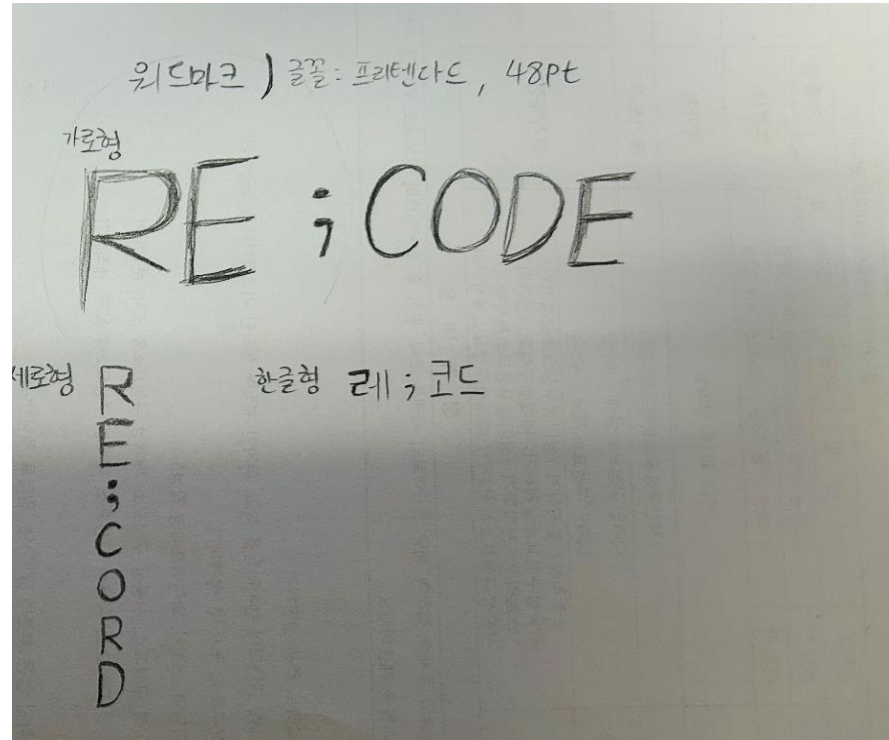 워드마크 ) 글꼴: 프리텐다드, 48pt
가로형
RE ; CODE
세로형
R
E
;
C
O
R
D
한글형 레 ; 코드